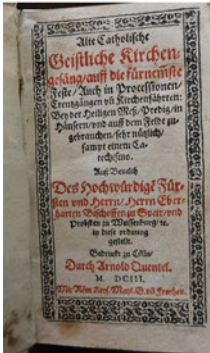 Alte Catholische
Geistliche Kirchen-
gesäng / auff die fürnemste
Feste / Auch in Processionen /
Creutzgängen vñ Kirchenfährten:
Bey der Heiligen Meß / Predig / in
Häusern / vnd auff dem Felde zu-
gebrauchen / sehr nützlich /
sampt einem Ca-
techismo.
Auß Beuelch
Des Hochwürdigē Für-
sten vnd Herrn / Herrn Eber-
harten Bischoffen zu Speir / vnd
Probsten zu Weissenburg / ꝛc.
in diese ordnung
gestellt.
Gedruckt zu Cölln /
Durch Arnold Quentel.
M. DCIII.
Mit Röm. Keys. Mayt. G. vnd Freyheit.